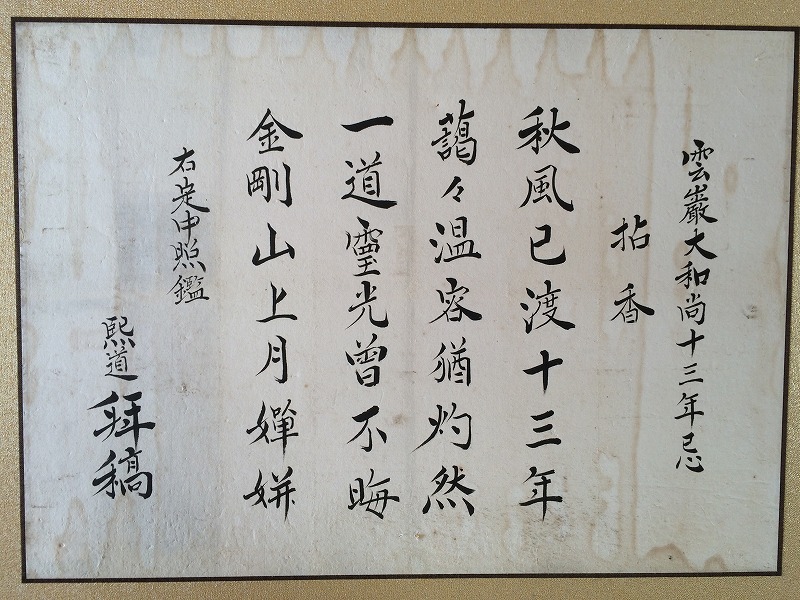 雲巖大和尚十三年忌
拈香
秋風已渡十三年
藹々温容猶灼然
一道靈光曾不晦
金剛山上月嬋姸
右定中照鑑
熙道拜稿